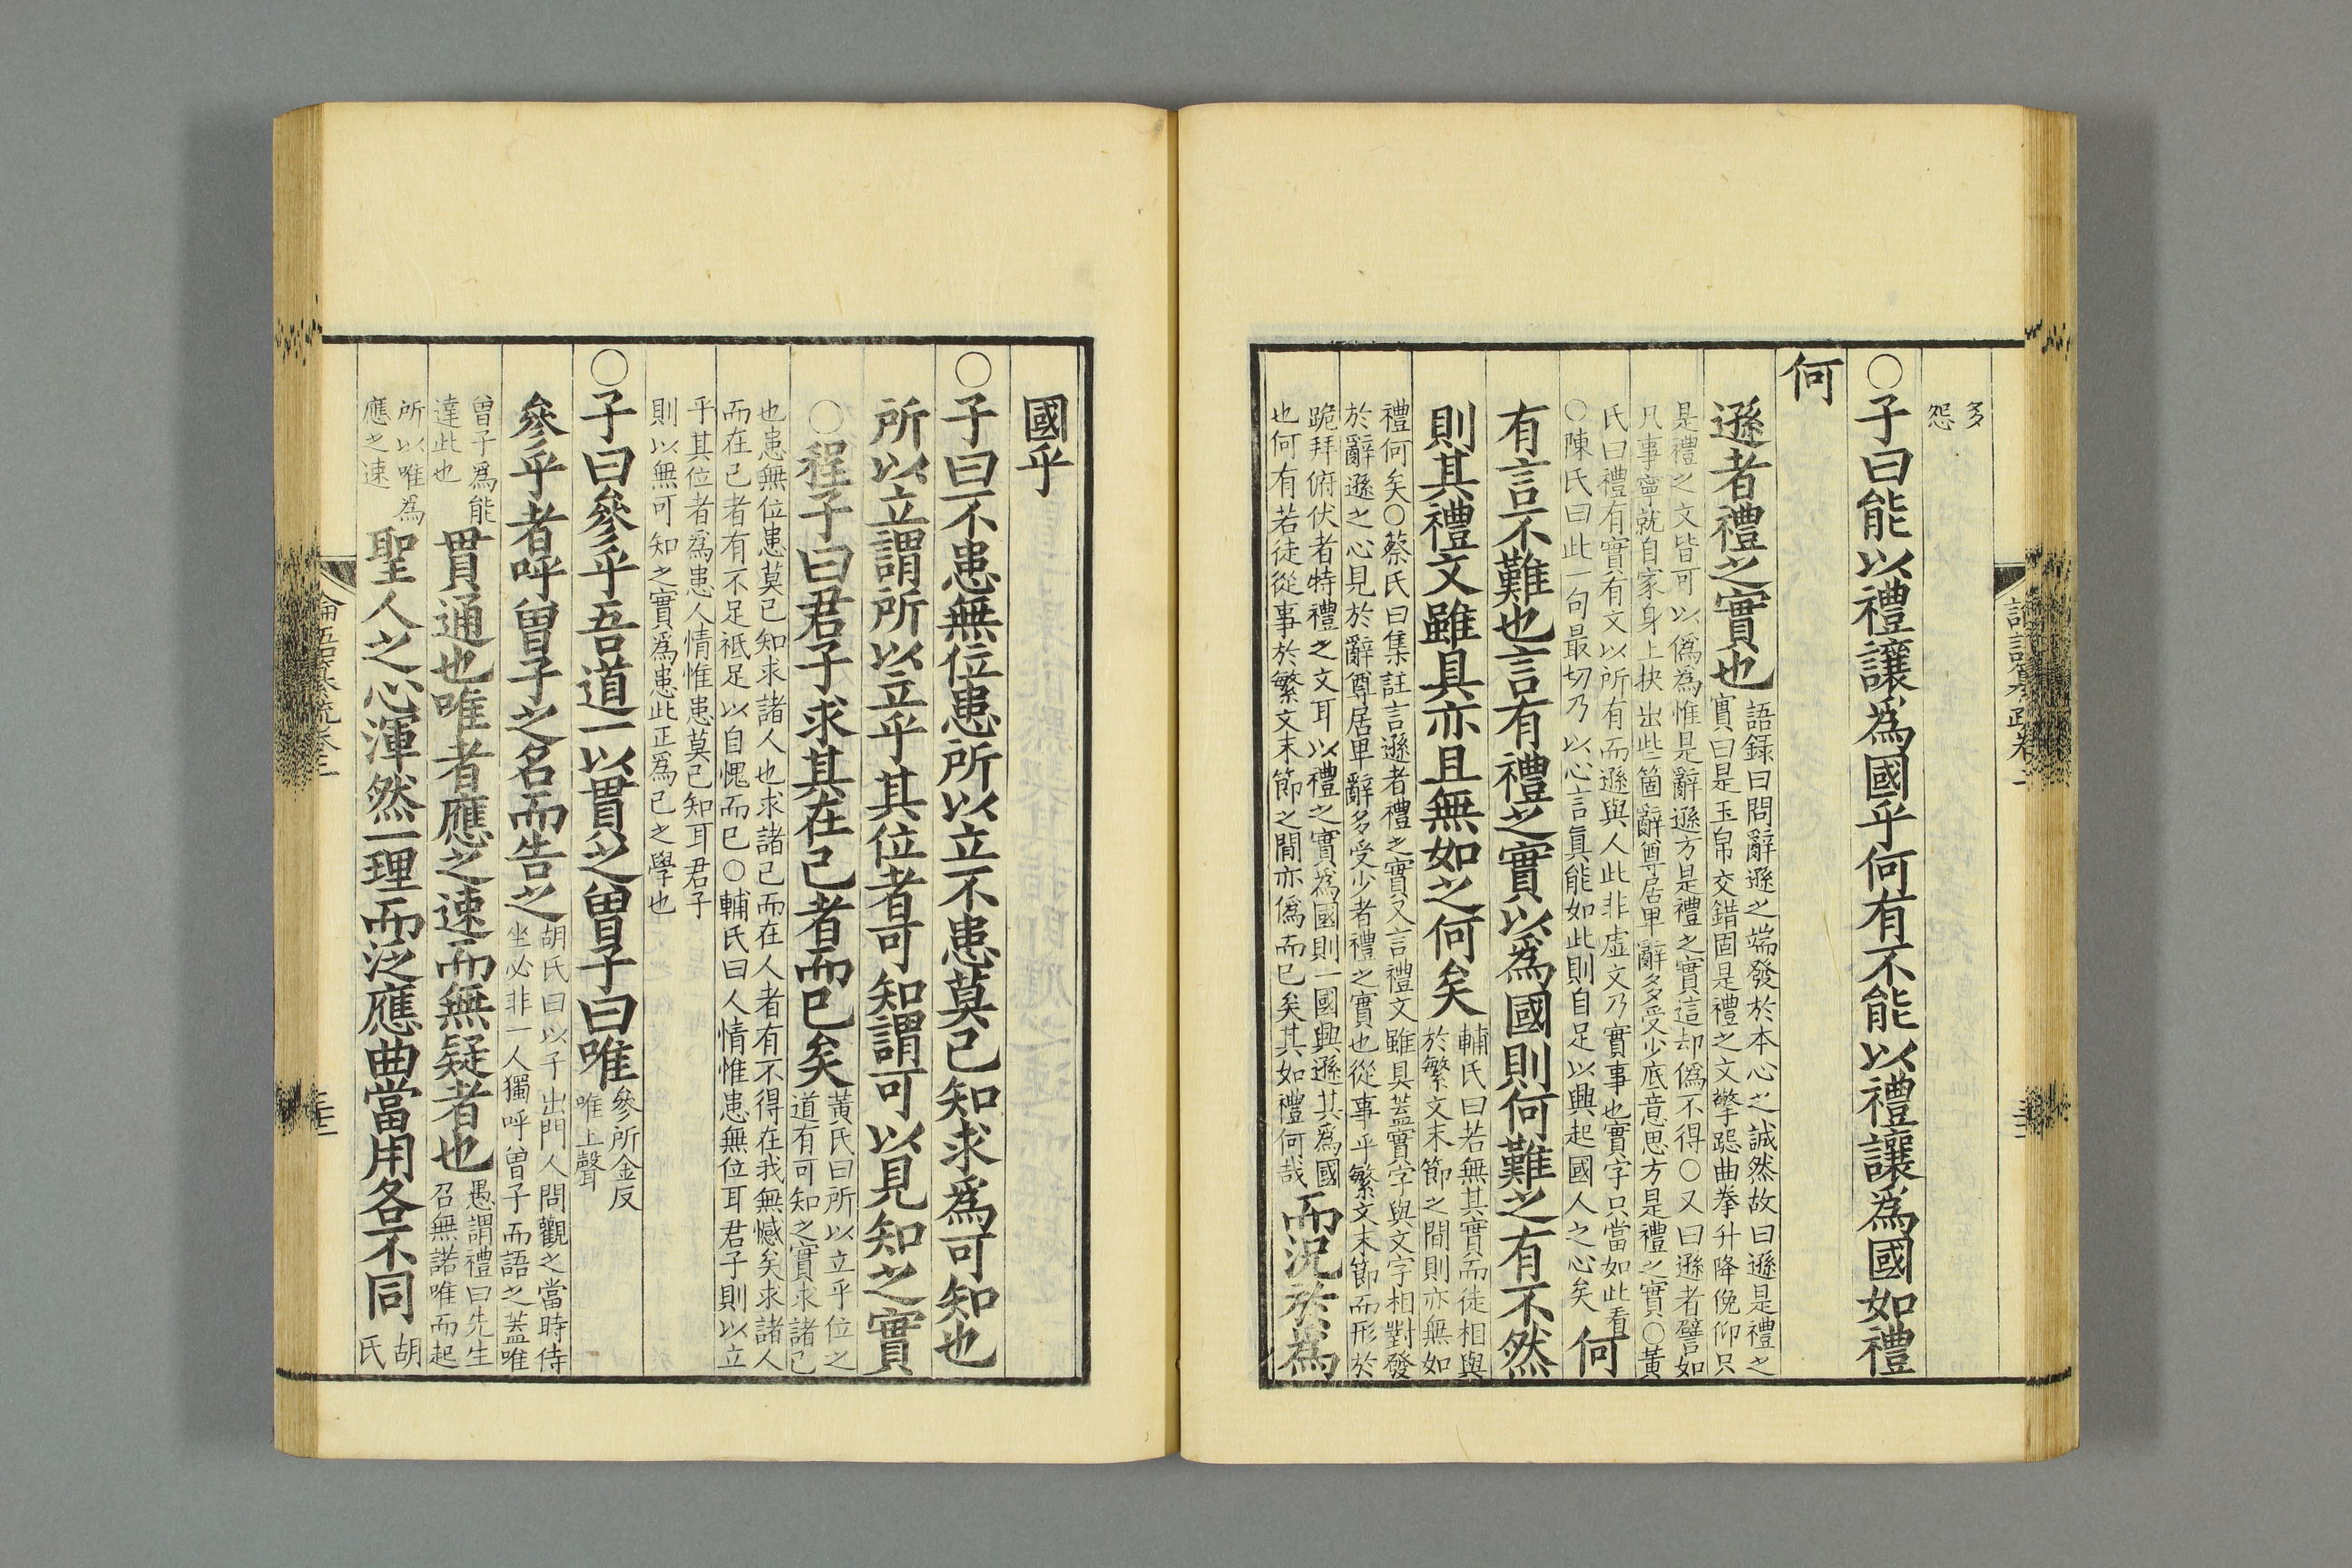 多
怨
○子曰能以禮讓爲國乎何有不能以禮讓爲國如禮
何
遜者禮之實也
語錄曰問辭遜之端發於本心之誠然故曰遜是禮之
實曰是玉帛交錯固是禮之文擎跽曲拳升降俛仰只
是禮之文皆可以僞爲惟是辭遜方是禮之實這却僞不得○又曰遜者譬如
凡事寧就自家身上抉出些箇辭尊居卑辭多受少底意思方是禮之實○黃
氏曰禮有實有文以所有而遜與人此非虛文乃實事也實字只當如此看
○陳氏曰此一句最切乃以心言眞能如此則自足以興起國人之心矣
何
有言不難也言有禮之實以爲國則何難之有不然
則其禮文雖具亦且無如之何矣
輔氏曰若無其實而徒相與
於繁文末節之間則亦無如
禮何矣○蔡氏曰集註言遜者禮之實又言禮文雖具蓋實字與文字相對發
於辭遜之心見於辭尊居卑辭多受少者禮之實也從事乎繁文末節而形於
跪拜俯伏者特禮之文耳以禮之實爲國則一國興遜其爲國
也何有若徒從事於繁文末節之間亦僞而已矣其如禮何哉
而況於爲
國乎
○子曰不患無位患所以立不患莫己知求爲可知也
所以立謂所以立乎其位者可知謂可以見知之實
○程子曰君子求其在己者而已矣
黃氏曰所以立乎位之
道有可知之實求諸己
也患無位患莫己知求諸人也求諸己而在人者有不得在我無憾矣求諸人
而在己者有不足祗足以自愧而已○輔氏曰人情惟患無位耳君子則以立
乎其位者爲患人情惟患莫己知耳君子
則以無可知之實爲患此正爲己之學也
○子曰參乎吾道一以貫之曾子曰唯
參所金反
唯上聲
參乎者呼曾子之名而告之
胡氏曰以子出門人問觀之當時侍
坐必非一人獨呼曾子而語之蓋唯
曾子爲能
達此也
貫通也唯者應之速而無疑者也
愚謂禮曰先生
召無諾唯而起
所以唯爲
應之速
聖人之心渾然一理而泛應曲當用各不同
胡
氏